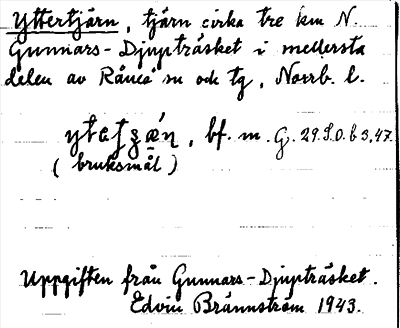 Yttertjärn, tjärn cirka tre km N.
Gunnars-Djupträsket i mellersta
delen av Råneå sn och tg, Norrb. l.
bf. m. G. 29.S.O. b 3,47.
(bruksmål)
Uppgiften från Gunnars-Djupträsket.
Edvin Brännström 1943.